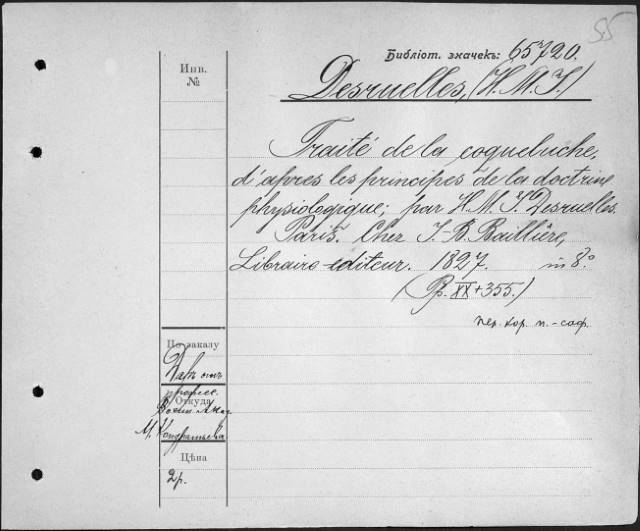 55
Библіот. значекъ: 65720.
Инв.
№
Desruelles, (H. M. J.)
Traité de la coqueluche,
d'après les principes de la doctrine
physiologique; par H. M. J. Desruelles.
Paris. Chez J. B. Baillière,
Libraire-editeur. 1827. in 8.º
(Pp. XX + 355.)
пер. кор. п.-саф.
По заказу
Даръ отъ
Откуда
М.
Цѣна
2р.